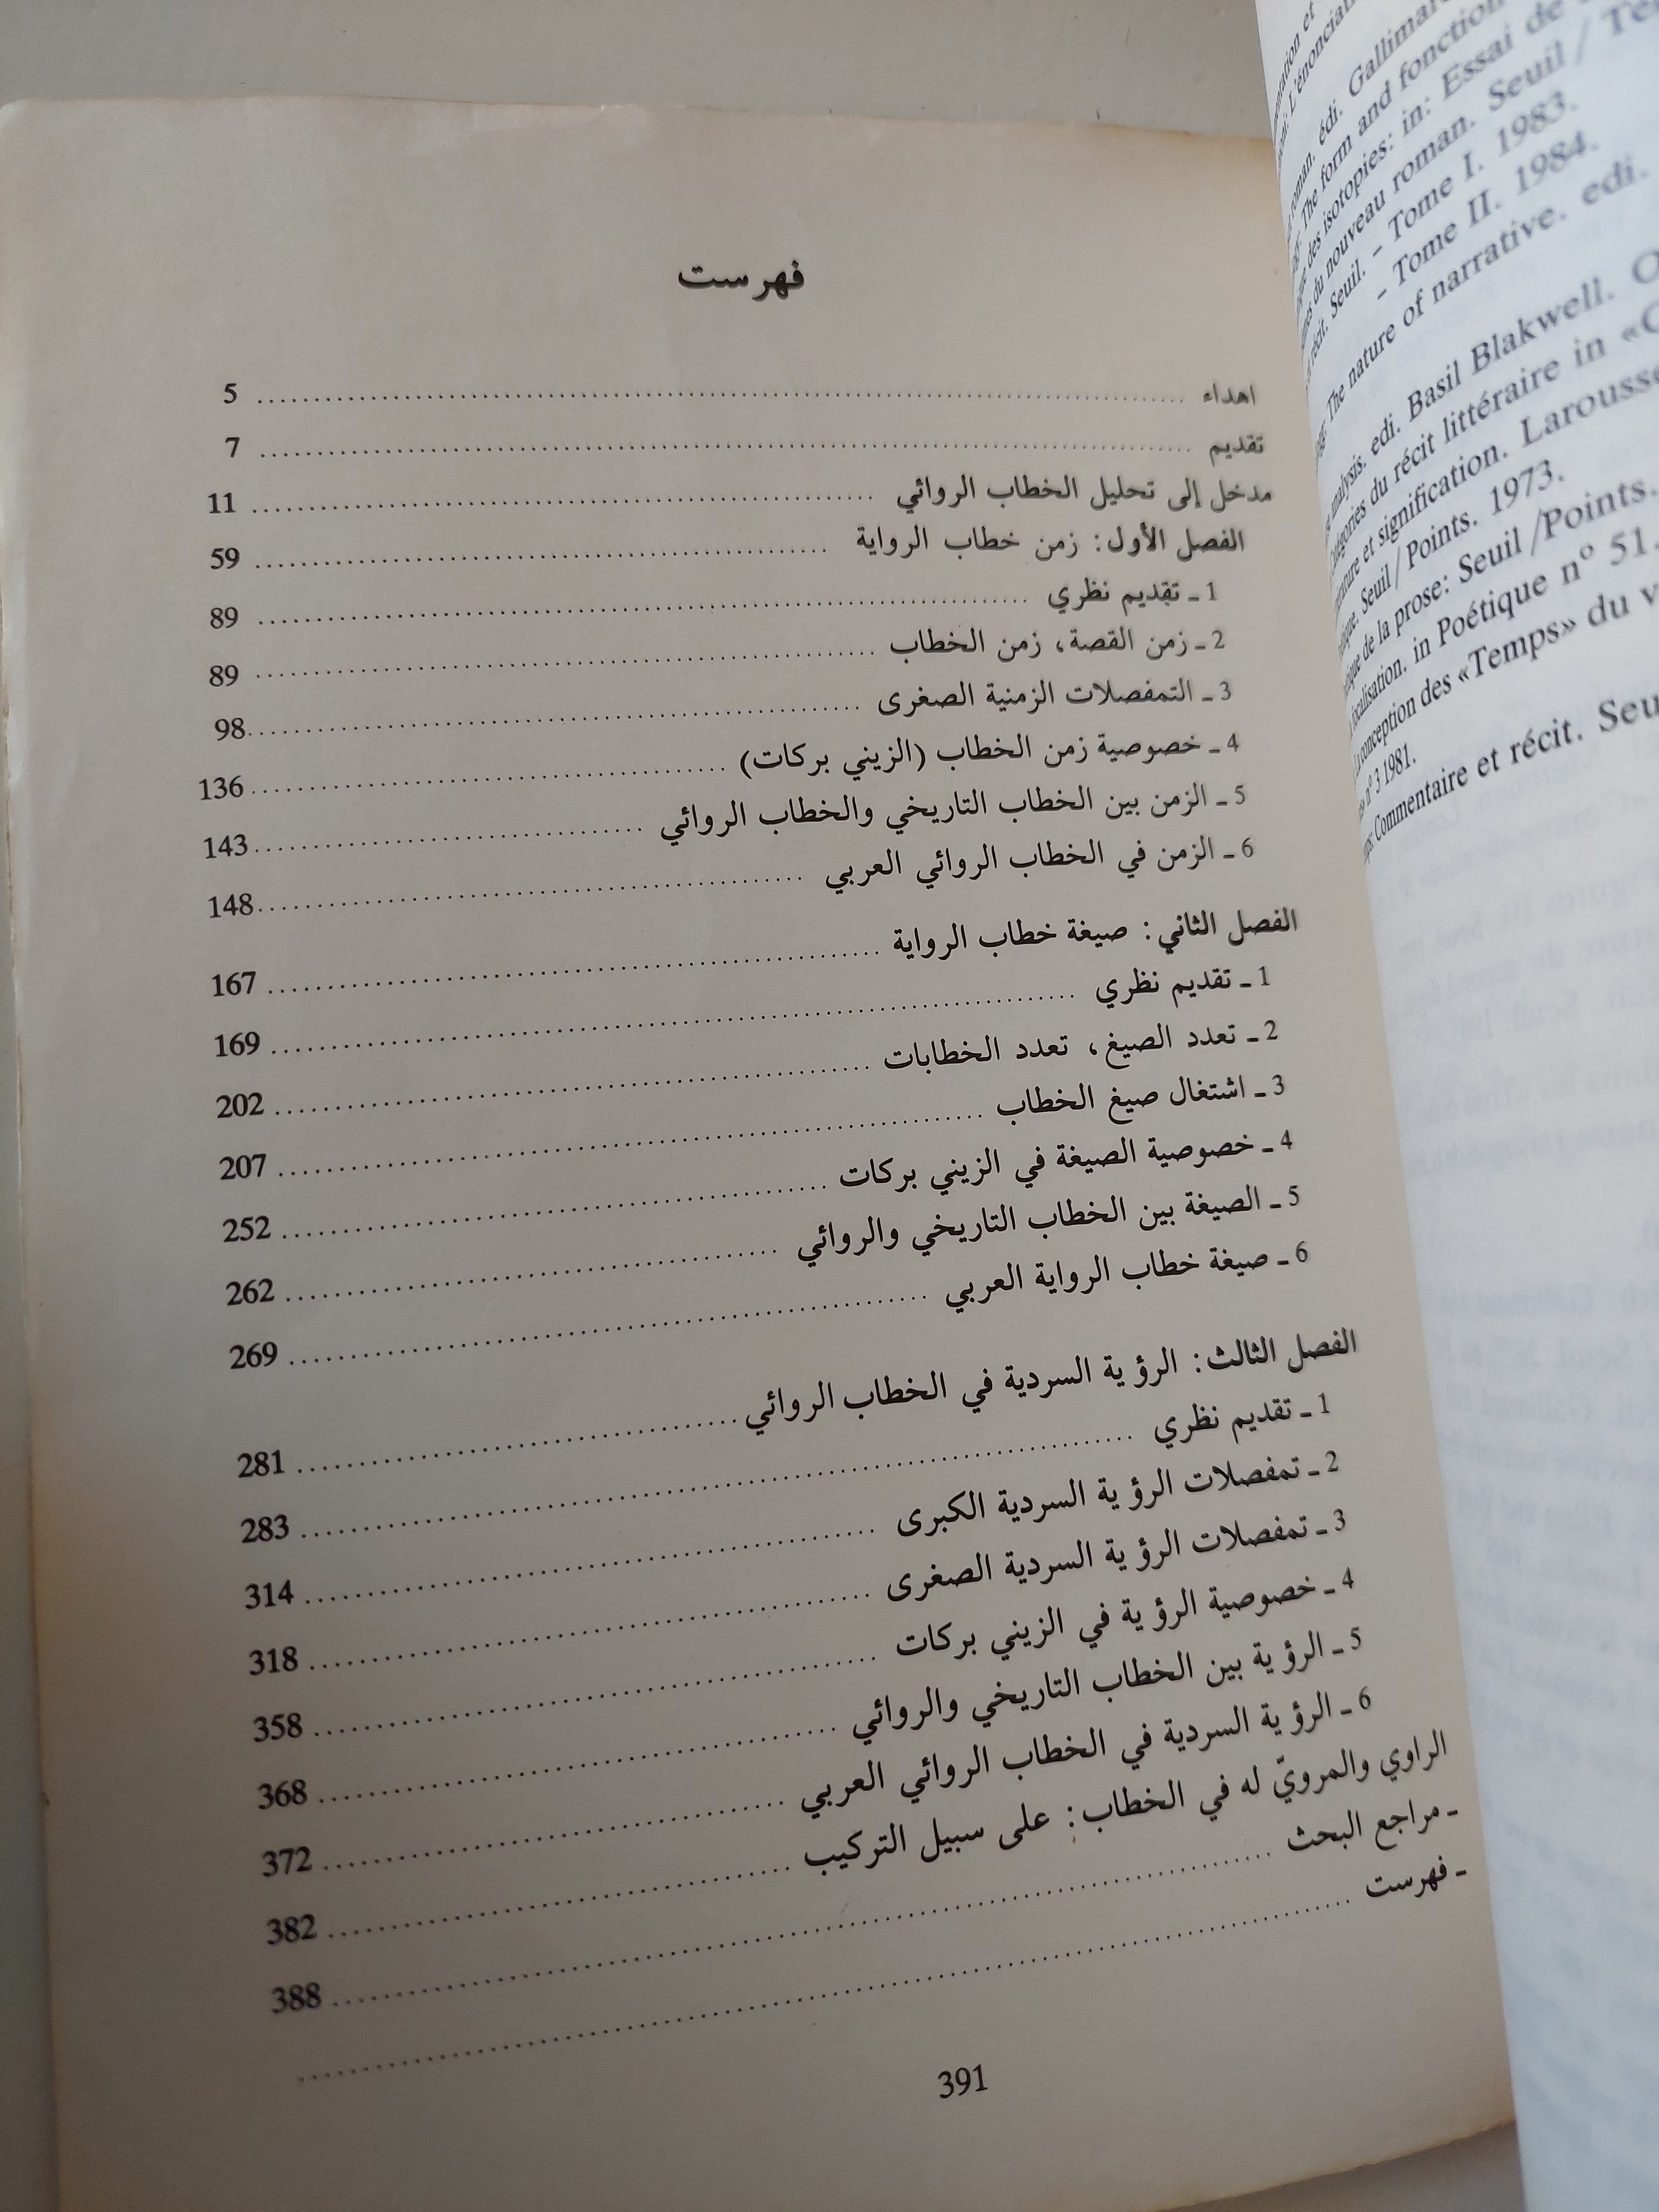 فهرست
اهداء ........ 5
تقديم ........ 7
مدخل إلى تحليل الخطاب الروائي ........ 11
الفصل الأول: زمن خطاب الرواية ........ 59
1 ـ تقديم نظري ........ 89
2 ـ زمن القصة، زمن الخطاب ........ 89
3 ـ التمفصلات الزمنية الصغرى ........ 98
4 ـ خصوصية زمن الخطاب (الزيني بركات) ........ 136
5 ـ الزمن بين الخطاب التاريخي والخطاب الروائي ........ 143
6 ـ الزمن في الخطاب الروائي العربي ........ 148
الفصل الثاني: صيغة خطاب الرواية ........ 167
1 ـ تقديم نظري ........ 169
2 ـ تعدد الصيغ، تعدد الخطابات ........ 202
3 ـ اشتغال صيغ الخطاب ........ 207
4 ـ خصوصية الصيغة في الزيني بركات ........ 252
5 ـ الصيغة بين الخطاب التاريخي والروائي ........ 262
6 ـ صيغة خطاب الرواية العربي ........ 269
الفصل الثالث: الرؤية السردية في الخطاب الروائي ........ 281
1 ـ تقديم نظري ........ 283
2 ـ تمفصلات الرؤية السردية الكبرى ........ 314
3 ـ تمفصلات الرؤية السردية الصغرى ........ 318
4 ـ خصوصية الرؤية في الزيني بركات ........ 358
5 ـ الرؤية بين الخطاب التاريخي والروائي ........ 368
6 ـ الرؤية السردية في الخطاب الروائي العربي ........ 372
الراوي والمرويّ له في الخطاب: على سبيل التركيب ........ 382
ـ مراجع البحث ........ 388
ـ فهرست ........
391
roman. édi. Gallimard
The form and fonction
des isotopies: in: Essai de
du nouveau roman. Seuil /
récit. Seuil. – Tome I. 1983.
– Tome II. 1984.
The nature of narrative. edi.
analysis. edi. Basil Blakwell. O
du récit littéraire in «C
et signification. Larousse
Seuil / Points. 1973.
de la prose: Seuil /Points.
focalisation. in Poétique nº 51.
conception des «Temps» du v
nº 3 1981.
Commentaire et récit. Seu